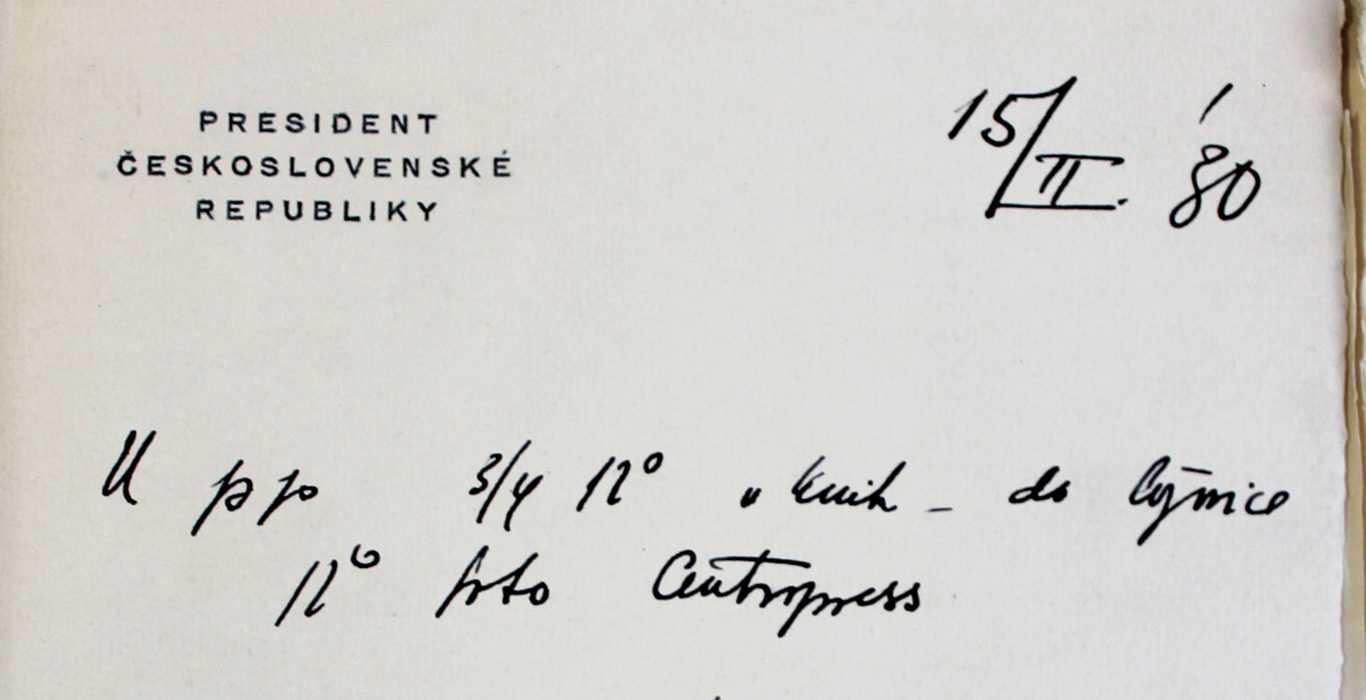 PRESIDENT
ČESKOSLOVENSKÉ
REPUBLIKY
15/II. 80
U pp 3/4 12° u knih – do
12° foto Centropress